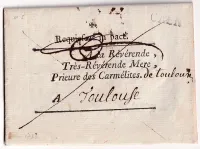 Requiescat in pace.
La Révérende,
Très-Révérende Mere,
Prieure des Carmélites, de Toulouse
A Toulouse